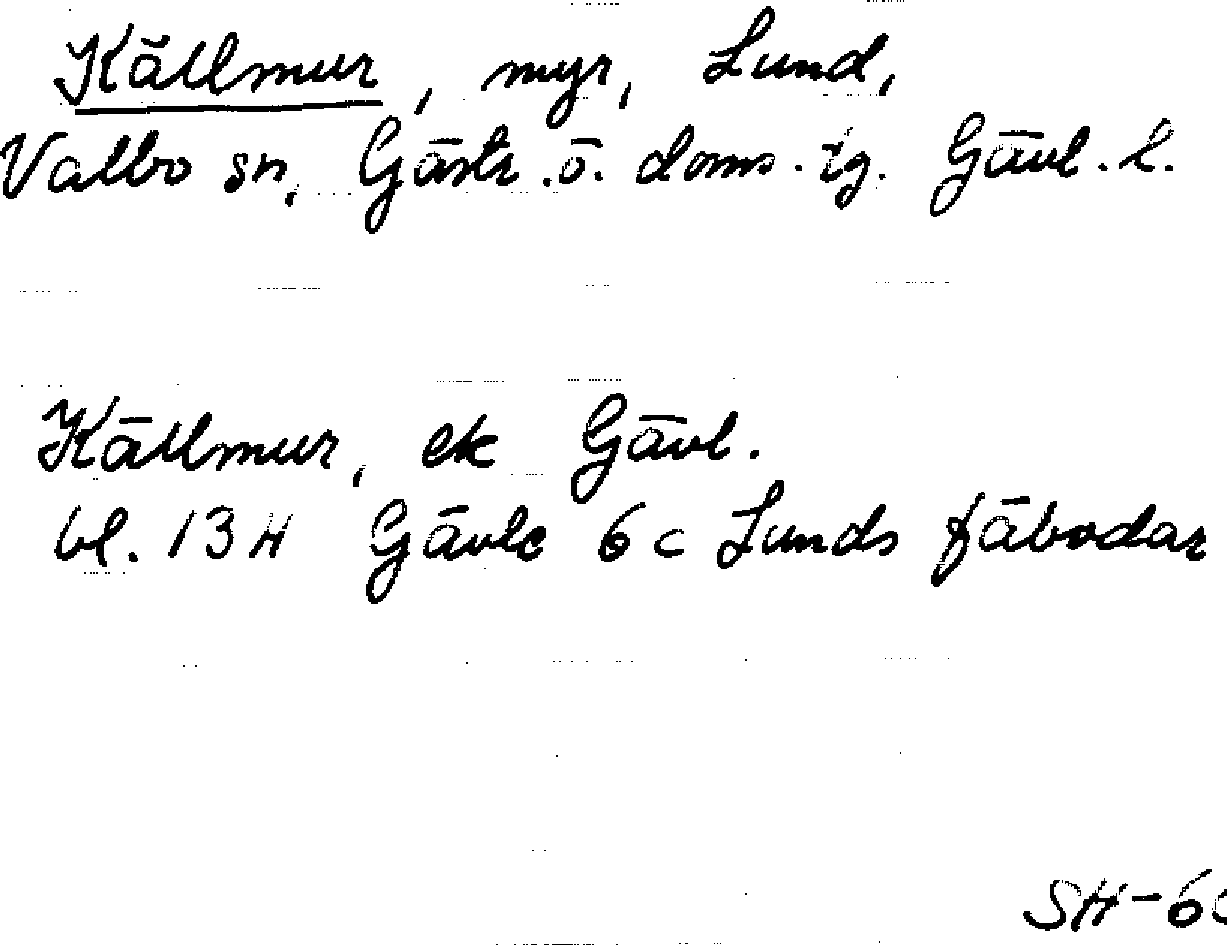 Källmur, myr, Lund,
Valbo sn, Gästr. ö. doms. tg. Gävl. l.
Källmur, ek Gävl.
bl. 13H Gävle 6c Lunds fäbodar